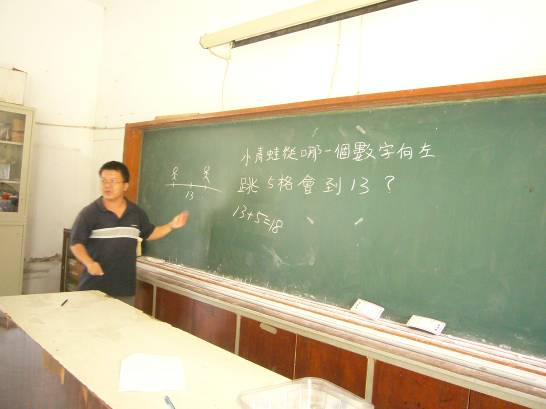 小青蛙從哪一個數字向左
跳5格會到13?
13
13+5=18